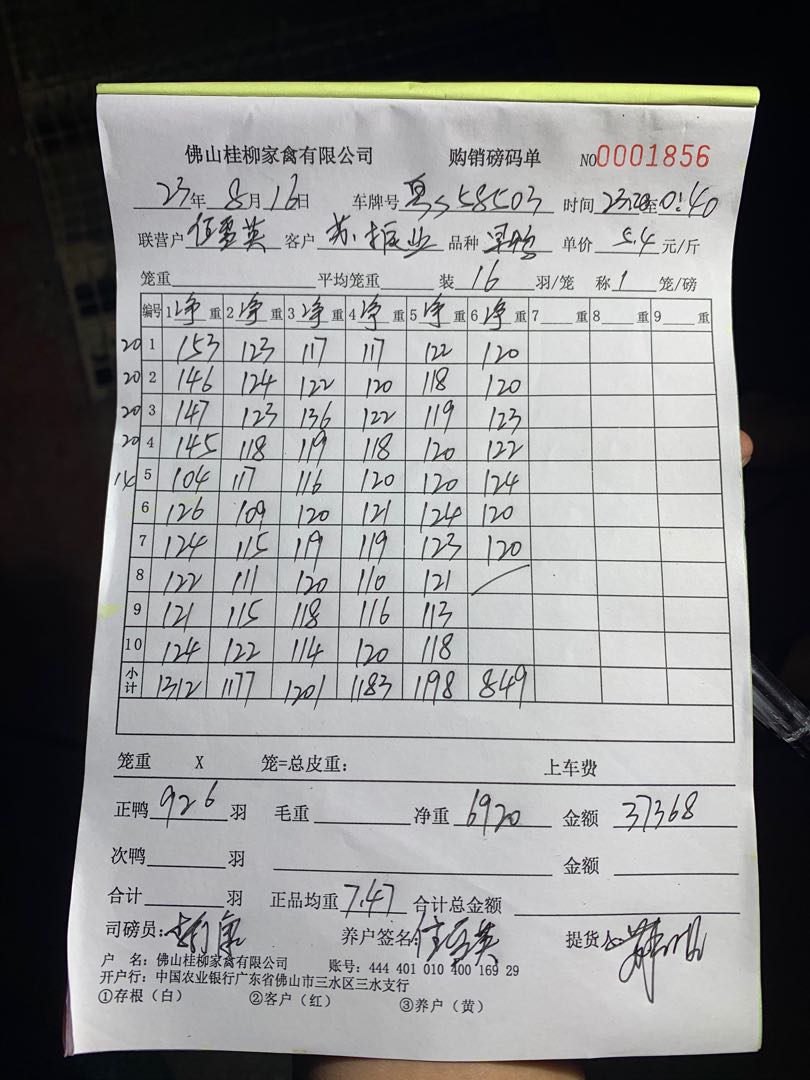 佛山桂柳家禽有限公司 购销磅码单 NO0001856
23年 8月16日 车牌号 粤S58503 时间 23:20至0:40
联营户 伍雪英 客户 苏振业 品种 单价 5.4 元/斤
笼重 平均笼重 装 16 羽/笼 称 1 笼/磅
编号 1 净 重 2 净 重 3 净 重 4 净 重 5 净 重 6 净 重 7 重 8 重 9 重
20 1 153 123 117 117 122 120
20 2 146 124 122 120 118 120
20 3 147 123 136 122 119 123
20 4 145 118 119 118 120 122
14 5 104 117 116 120 120 124
6 126 109 120 121 124 120
7 124 115 119 119 123 120
8 122 111 120 110 121
9 121 115 118 116 113
10 124 122 114 120 118
小计 1312 1177 1201 1183 1198 849
笼重 X 笼=总皮重: 上车费
正鸭 926 羽 毛重 净重 6920 金额 37368
次鸭 羽 金额
合计 羽 正品均重 7.47 合计总金额
司磅员: 养户签名: 伍雪英 提货人
户 名: 佛山桂柳家禽有限公司 账号: 444 401 010 400 169 29
开户行: 中国农业银行广东省佛山市三水区三水支行
①存根(白) ②客户(红) ③养户(黄)